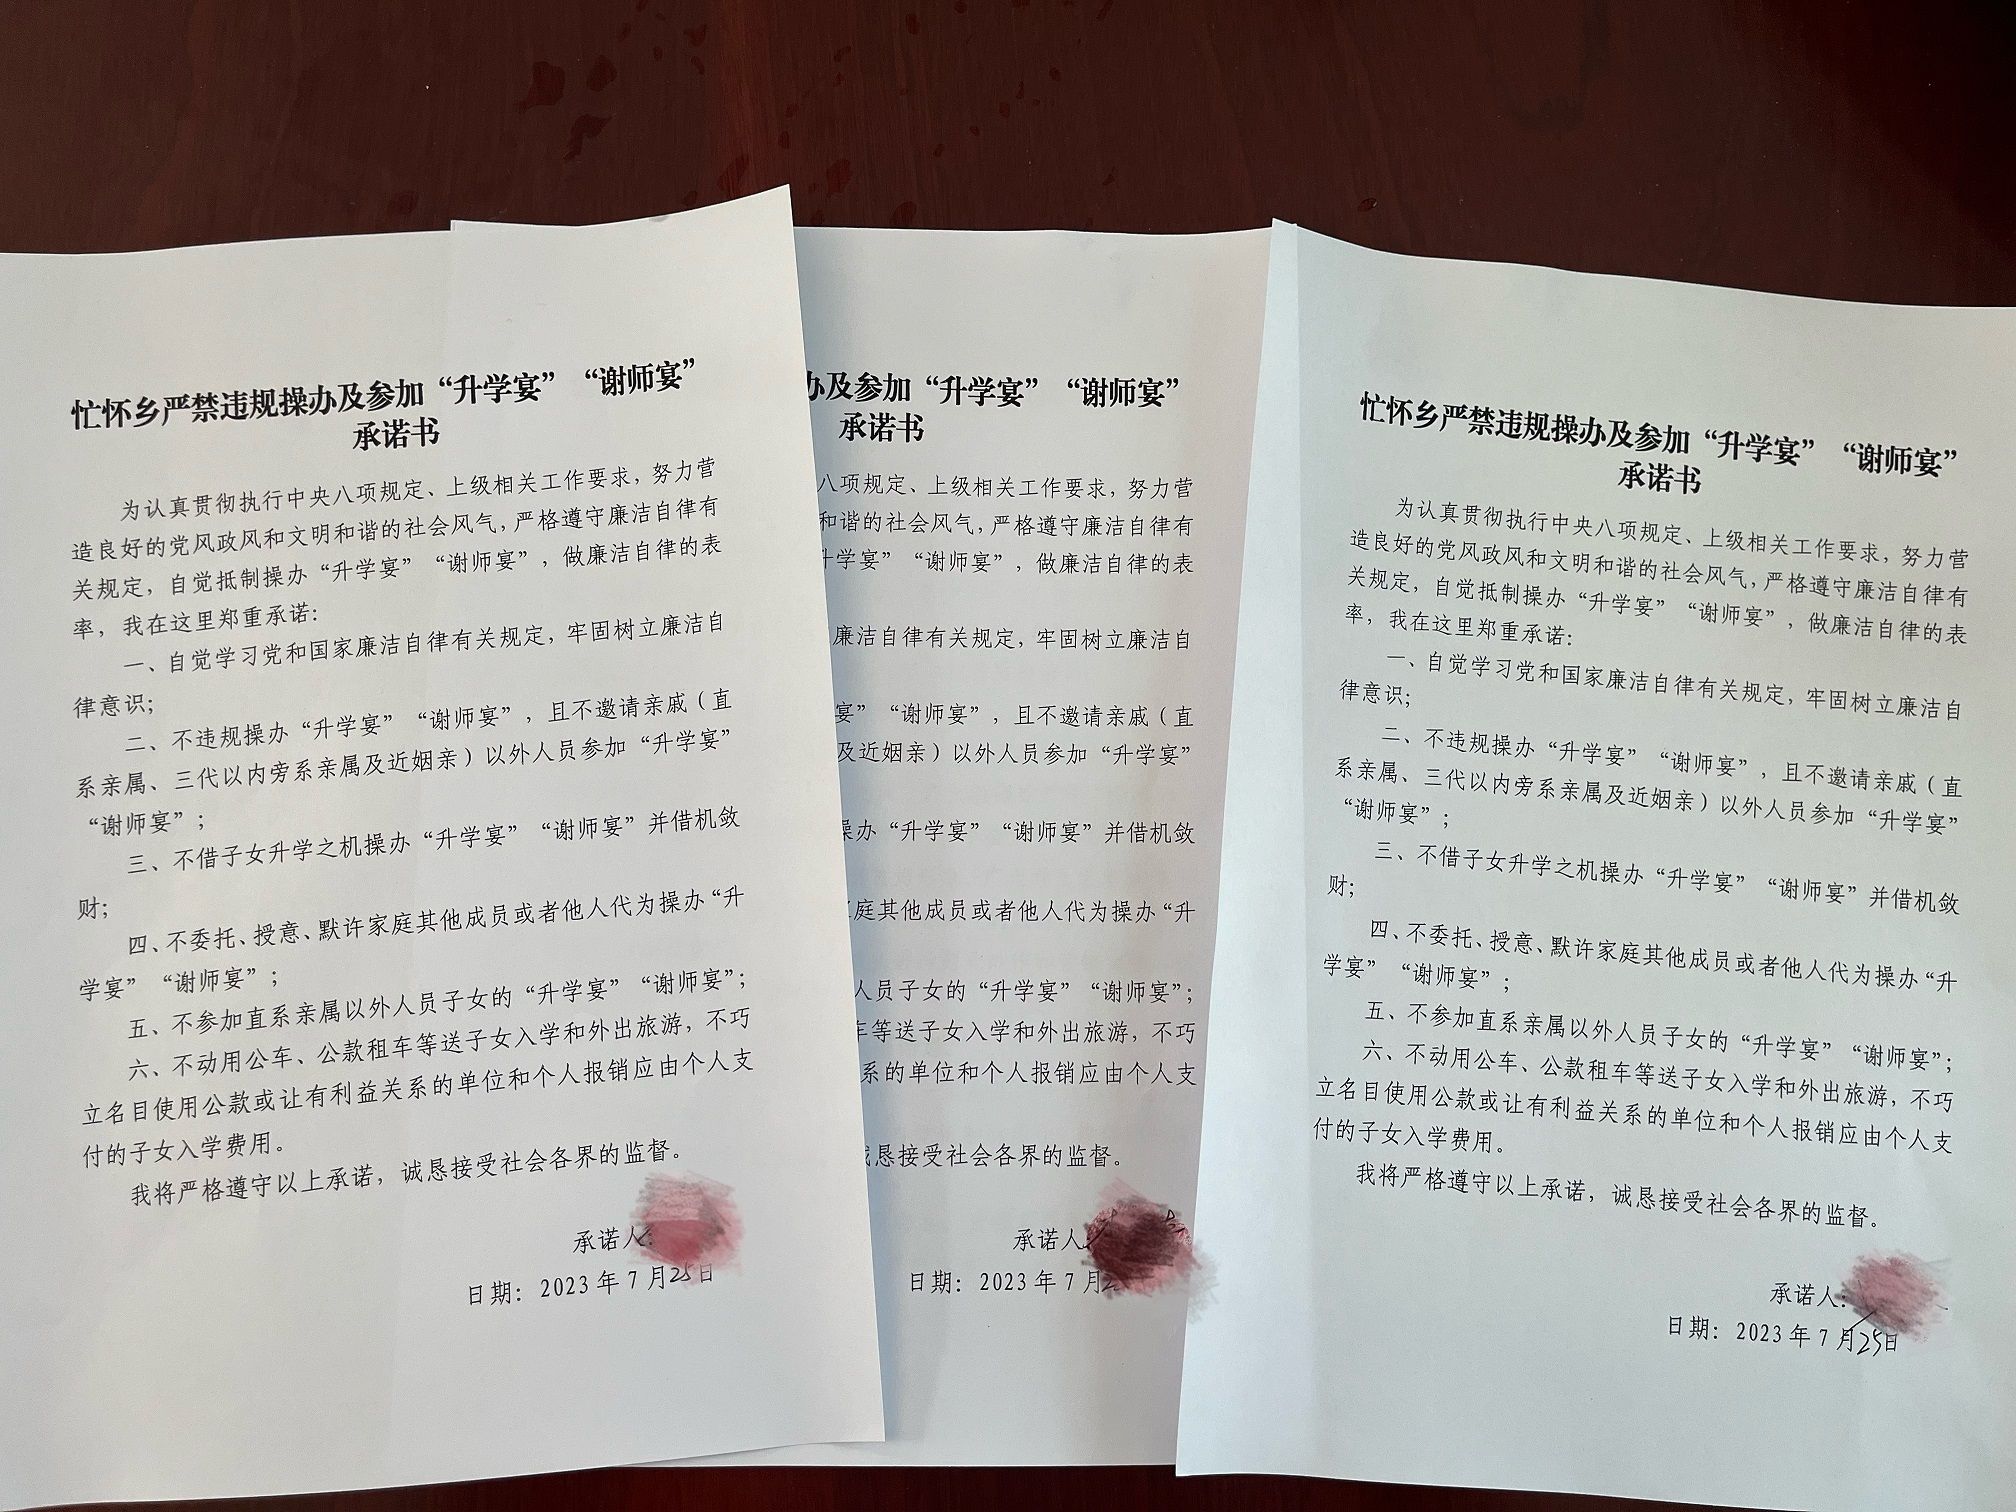 忙怀乡严禁违规操办及参加“升学宴”“谢师宴”
承诺书
为认真贯彻执行中央八项规定、上级相关工作要求，努力营
造良好的党风政风和文明和谐的社会风气，严格遵守廉洁自律有
关规定，自觉抵制操办“升学宴”“谢师宴”，做廉洁自律的表
率，我在这里郑重承诺：
一、自觉学习党和国家廉洁自律有关规定，牢固树立廉洁自
律意识；
二、不违规操办“升学宴”“谢师宴”，且不邀请亲戚（直
系亲属、三代以内旁系亲属及近姻亲）以外人员参加“升学宴”
“谢师宴”；
三、不借子女升学之机操办“升学宴”“谢师宴”并借机敛
财；
四、不委托、授意、默许家庭其他成员或者他人代为操办“升
学宴”“谢师宴”；
五、不参加直系亲属以外人员子女的“升学宴”“谢师宴”；
六、不动用公车、公款租车等送子女入学和外出旅游，不巧
立名目使用公款或让有利益关系的单位和个人报销应由个人支
付的子女入学费用。
我将严格遵守以上承诺，诚恳接受社会各界的监督。
承诺人：
日期：2023年7月25日
办及参加“升学宴”“谢师宴”
承诺书
八项规定、上级相关工作要求，努力营
和谐的社会风气，严格遵守廉洁自律有
升学宴”“谢师宴”，做廉洁自律的表
廉洁自律有关规定，牢固树立廉洁自
宴”“谢师宴”，且不邀请亲戚（直
及近姻亲）以外人员参加“升学宴”
操办“升学宴”“谢师宴”并借机敛
庭其他成员或者他人代为操办“升
人员子女的“升学宴”“谢师宴”；
车等送子女入学和外出旅游，不巧
系的单位和个人报销应由个人支
诚恳接受社会各界的监督。
承诺人
日期：2023年7月2
忙怀乡严禁违规操办及参加“升学宴”“谢师宴”
承诺书
为认真贯彻执行中央八项规定、上级相关工作要求，努力营
造良好的党风政风和文明和谐的社会风气，严格遵守廉洁自律有
关规定，自觉抵制操办“升学宴”“谢师宴”，做廉洁自律的表
率，我在这里郑重承诺：
一、自觉学习党和国家廉洁自律有关规定，牢固树立廉洁自
律意识；
二、不违规操办“升学宴”“谢师宴”，且不邀请亲戚（直
系亲属、三代以内旁系亲属及近姻亲）以外人员参加“升学宴”
“谢师宴”；
三、不借子女升学之机操办“升学宴”“谢师宴”并借机敛
财；
四、不委托、授意、默许家庭其他成员或者他人代为操办“升
学宴”“谢师宴”；
五、不参加直系亲属以外人员子女的“升学宴”“谢师宴”；
六、不动用公车、公款租车等送子女入学和外出旅游，不巧
立名目使用公款或让有利益关系的单位和个人报销应由个人支
付的子女入学费用。
我将严格遵守以上承诺，诚恳接受社会各界的监督。
承诺人：
日期：2023年7月25日